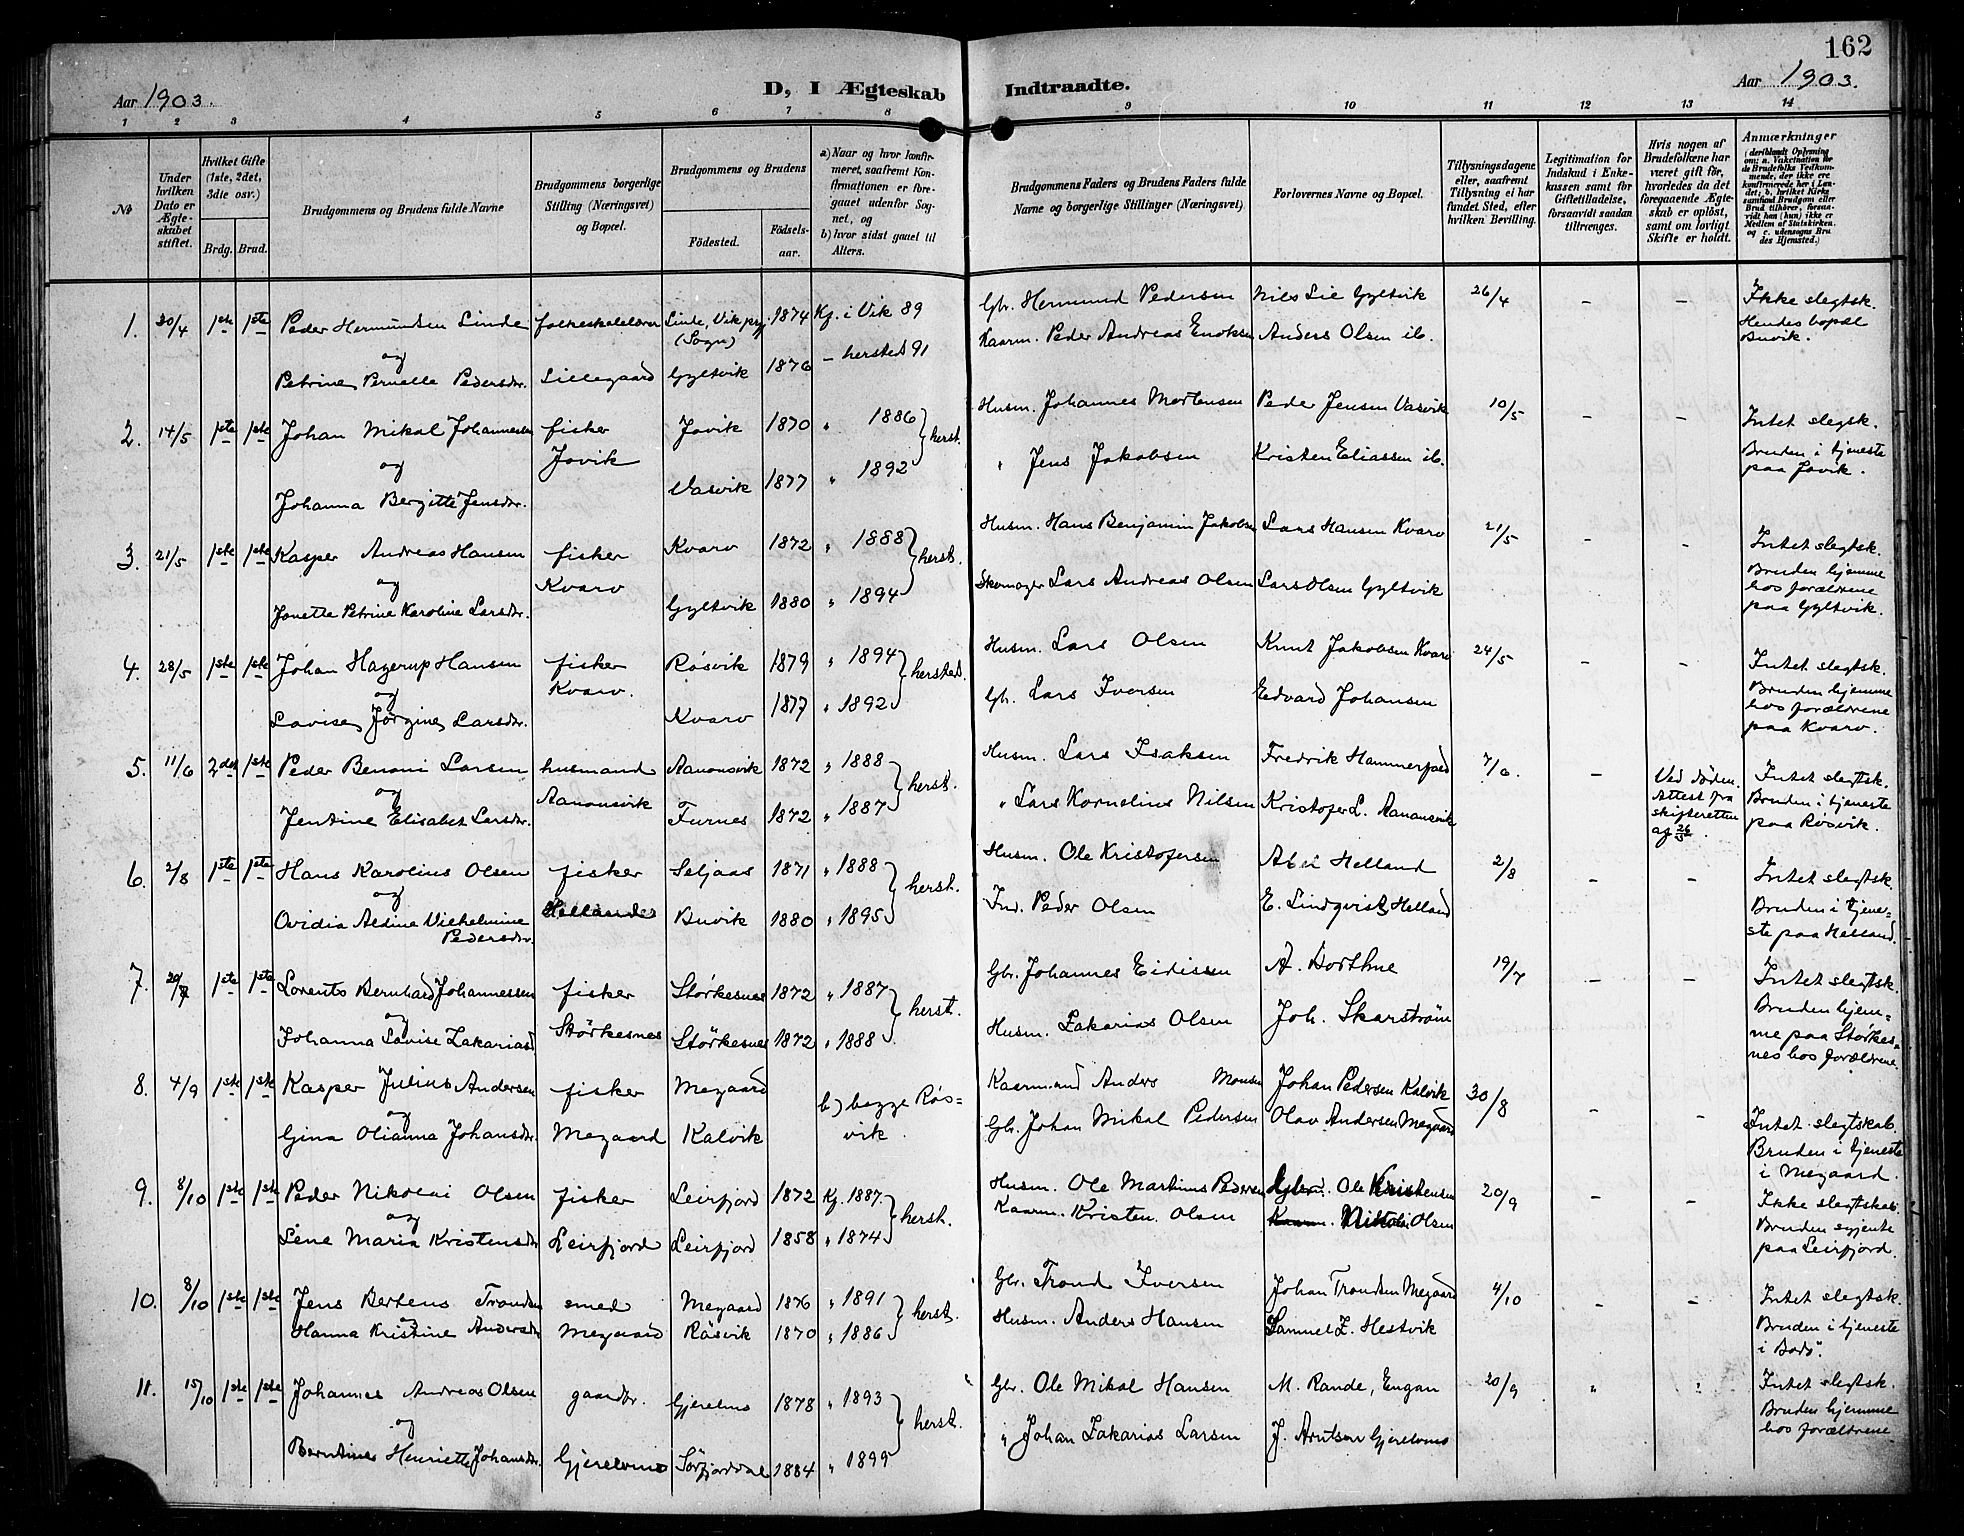 162
Aar 1903.
D, I Ægteskab Indtraadte.
Aar 1903.
1 2 3 4 5 6 7 8 9 10 11 12 13 14
No
Under hvilken Dato er Ægteskabet stiftet.
Hvilket Gifte (1ste, 2det, 3die osv.)
Brdg. Brud.
Brudgommens og Brudens fulde Navne
Brudgommens borgerlige Stilling (Næringsvei) og Bopæl.
Brudgommens og Brudens
Fødested. Fødselsaar.
a) Naar og hvor konfirmeret, saafremt Konfirmationen er foregaaet udenfor Sognet, og
b) hvor sidst gaaet til Alters.
Brudgommens Faders og Brudens Faders fulde Navne og borgerlige Stillinger (Næringsvei)
Forlovernes Navne og Bopæl.
Tillysningsdagene eller, saafremt Tillysning ei har fundet Sted, efter hvilken Bevilling.
Legitimation for Indskud i Enkekassen samt for Giftetilladelse, forsaavidt saadan tiltrænges.
Hvis nogen af Brudefolkene har været gift før, hvorledes da det foregaaende Ægteskab er opløst, samt om lovligt Skifte er holdt.
Anmærkninger
(deriblandt Oplysning om: a. Vakcination for de Brudefolks Vedkommende, der ikke ere konfirmerede her i Landet; b. hvilket Kirkesamfund Brudgom eller Brud tilhører, forsaavidt han (hun) ikke er Medlem af Statskirken, og c. udensogns Brudes Hjemsted.)
1. 30/4 1ste 1ste Peder Hermundsen Linde folkeskolelærer Linde, Vik prgj. (Sogn) 1874 Kf. i Vik 89 Gbr. Hermund Pedersen Nils Lie Gyltvik 26/4 – – Ikke slegtsk.
og
Petrine Pernelle Pedersdr. Lillegaard Gyltvik 1876 – hersteds 91 Kaarm. Peder Andreas Enoksen Anders Olsen ib. Hendes bopæl Buvik.
2. 14/5 1ste 1ste Johan Mikal Johannessen fisker Jovik 1870 " 1886 herst. Husm. Johannes Mortensen Peder Jensen Vasvik 10/5 – – Intet slegsk.
og Jovik
Johanna Bergitte Jensdr. Vasvik 1877 " 1892 " Jens Jakobsen Kristen Eliassen ib. Bruden i tjeneste paa Jovik.
3. 21/5 1ste 1ste Kasper Andreas Hansen fisker Kvarv 1872 " 1888 herst. Husm. Hans Benjamin Jakobsen Lars Hansen Kvarv 21/5 – – Intet slegtsk.
og Kvarv
Jonette Petrine Karoline Larsdr. Gyltvik 1880 " 1894 Skomager Lars Andreas Olsen Lars Olsen Gyltvik Bruden hjemme hos forældrene paa Gyltvik.
4. 28/5 1ste 1ste Johan Hagerup Hansen fisker Røsvik 1879 " 1894 hersteds. Husm. Lars Olsen Knut Jakobsen Kvarv 24/5 – – Intet slegtsk.
og Kvarv.
Lovise Jørgine Larsdr. Kvarv 1877 " 1892 Gbr. Lars Iversen Edvard Johansen Bruden hjemme hos forældrene paa Kvarv.
5. 11/6 2det 1ste Peder Benoni Larsen husmand Aanonsvik 1872 " 1888 herst. Husm. Lars Isaksen Fredrik Hammerfald 7/6. – Ved døden. Attest fra skifteretten af 26/5 Intet slegtsk.
og Aanonsvik
Jentine Elisabet Larsdr. Furnes 1872 " 1887 " Lars Kornelius Nilsen Kristofer L. Aanonsvik Bruden i tjeneste paa Røsvik.
6. 2/8 1ste 1ste Hans Karolius Olsen fisker Seljaas 1871 " 1888 herst. Husm. Ole Kristofersen Helland 2/8 – – Intet slegtsk.
og Helland
Ovidia Aldine Vilhelmine Pedersdr. Buvik 1880 " 1895 Ind. Peder Olsen E. Lindqvist, Helland Bruden i tjeneste paa Helland.
7. 20/7 1ste 1ste Lorents Bernhard Johannessen fisker Størkesnes 1872 " 1887 herst. Gbr. Johannes Eidissen 19/7 – – Intet slegtsk.
og Størkesnes
Johanna Lovise Zakariasd Størkesnes 1872 " 1888 Husm. Zakarias Olsen Joh. Skarstrøm Bruden hjemme paa Størkesnes hos forældrene.
8. 4/9 1ste 1ste Kasper Julius Andersen fisker Megaard b) begge Røsvik Kaarmand Anders Monsen Johan Pedersen Kalvik 30/8 – – Intet slegtskab.
og
Gina Olianna Johansdr. Megaard Kalvik Gbr. Johan Mikal Pedersen Olav Andersen Megaard Bruden i tjeneste i Megaard.
9. 8/10 1ste 1ste Peder Nikolai Olsen fisker Leirfjord 1872 Kf. 1887. herst. Husm. Ole Martinus Pedersen Ole Kristensen 20/9 – – Ikke slegtskab.
og
Lene Maria Kristensdr Leirfjord Leirfjord 1858 " 1874 Kaarm. Kristen. Olsen Kaarm. Nikolai Olsen Bruden syjente paa Leirfjord.
10. 8/10 1ste 1ste Jens Bertens Trondsen smed Megaard 1876 " 1891 herst. Gbr. Trond Iversen Johan Trondsen Megaard 4/10 – – Intet slegtsk.
og
Hanna Kristine Andersdr Megaard Røsvik 1870 " 1886 Husm. Anders Hansen Samuel Z. Hestvik Bruden i tjeneste i Bodø.
11. 15/10 1ste 1ste Johannes Andreas Olsen gaardbr. Gjerelvnes 1878 " 1893 herst. Gbr. Ole Mikal Hansen M. Rande, Engan 20/9 " " Intet slegtsk.
og
Berntine Henriette Johansdr. Gjerelvnes Sørfjorddal 1884 " 1899 " Johan Zakarias Larsen J. Arntsen Gjerelvnes Bruden hjemme hos forældrene